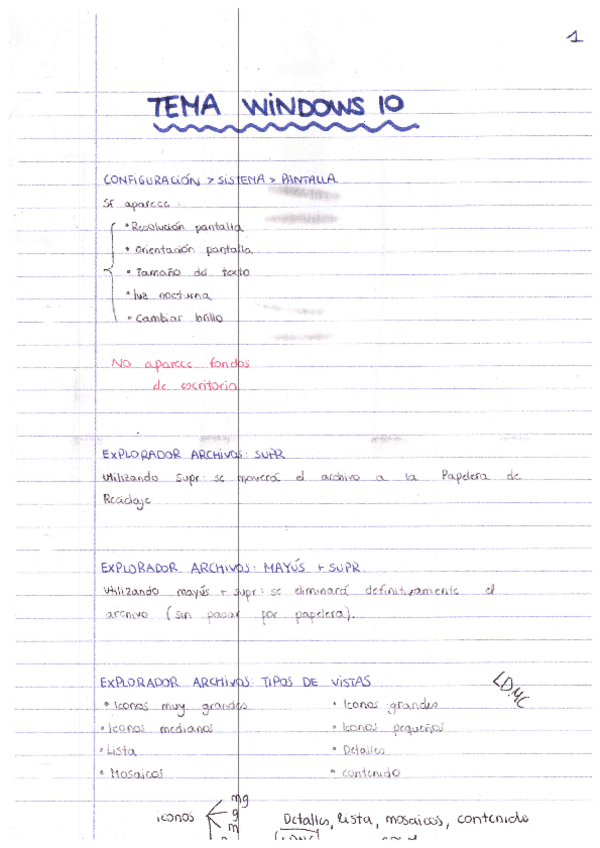 1
TEMA WINDOWS 10
CONFIGURACIÓN > SISTEMA > PANTALLA
Sí aparece:
• Resolución pantalla
• Orientación pantalla
• Tamaño del texto
• luz nocturna
• Cambiar brillo
No aparece fondos
de escritorio
EXPLORADOR ARCHIVOS: SUPR
Utilizando Supr: se moverá el archivo a la Papelera de
Reciclaje
EXPLORADOR ARCHIVOS: MAYÚS + SUPR
Utilizando mayús + supr: se eliminará definitivamente el
archivo (sin pasar por papelera).
EXPLORADOR ARCHIVOS: TIPOS DE VISTAS
LDMC
• Iconos muy grandes • Iconos grandes
• Iconos medianos • Iconos pequeños
• Lista • Detalles
• Mosaicos • Contenido
mg
iconos g Detalles, lista, mosaicos, contenido
m